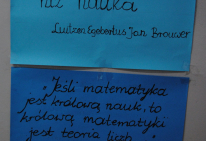 niż nauka
Luitzen Egebertus Jan Brouwer
„Jeśli matematyka
jest królową nauk, to
królową matematyki
jest teoria liczb